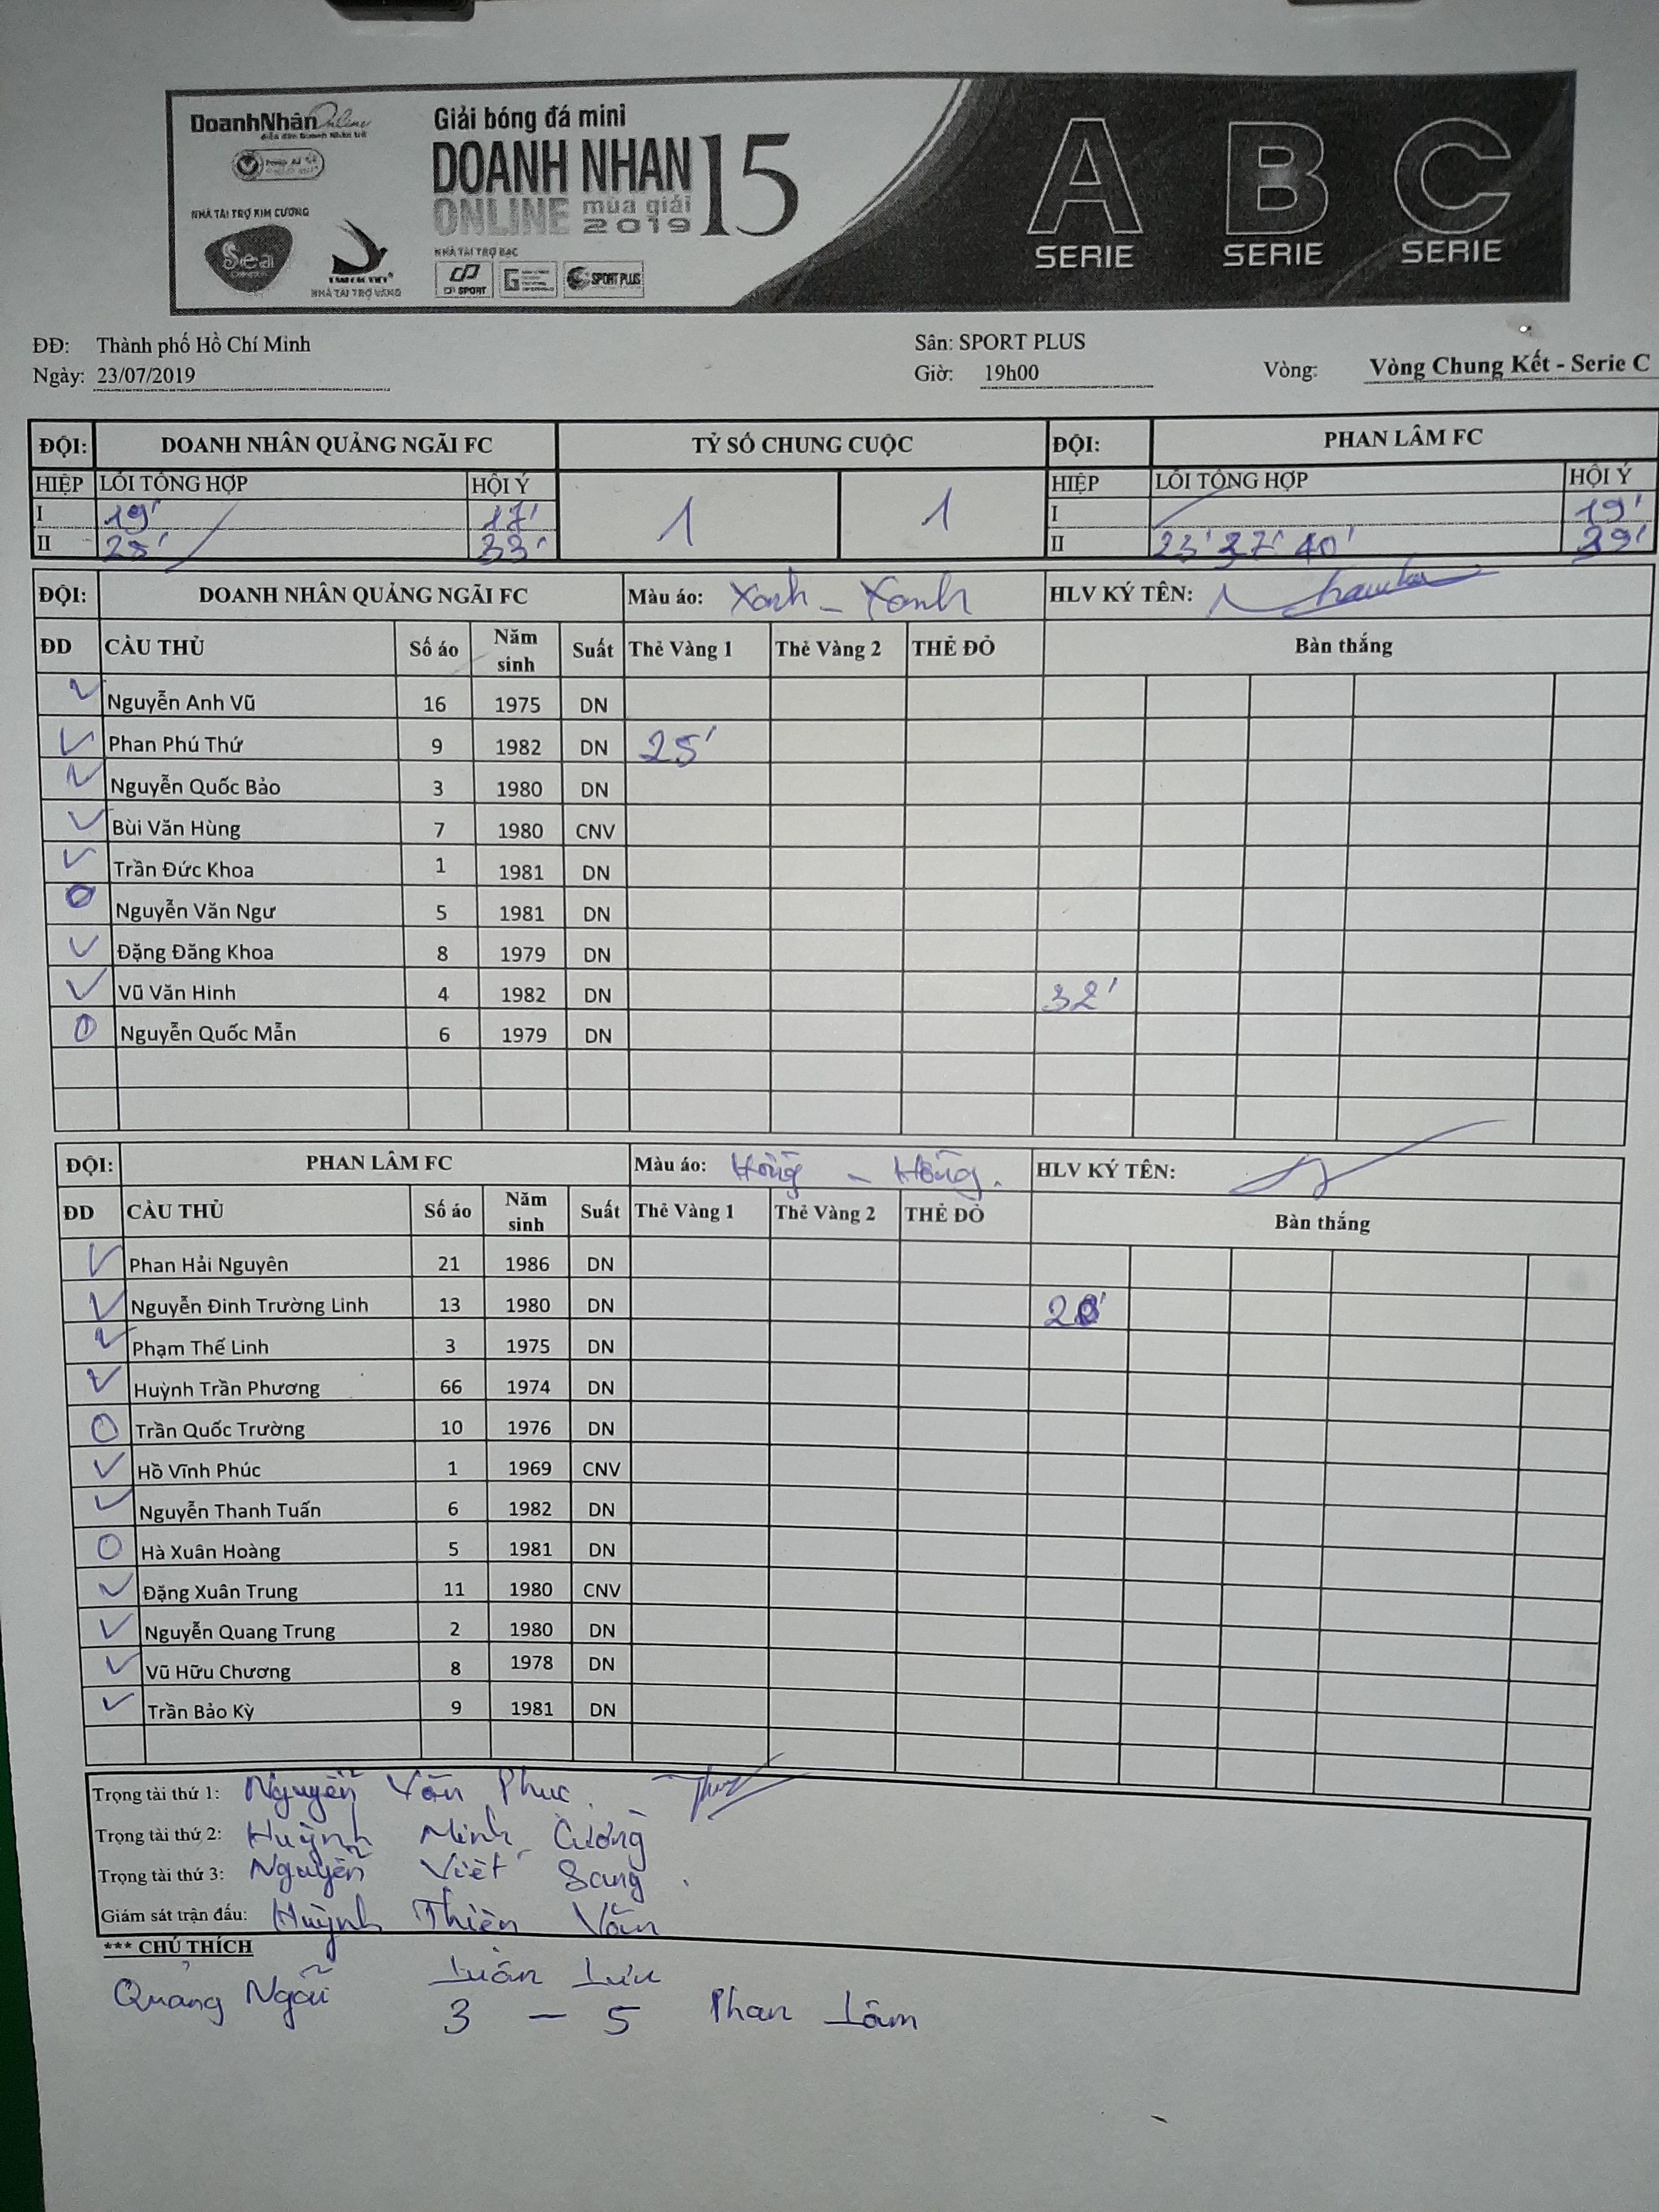 DoanhNhân Online
Giải bóng đá mini
DOANH NHAN 15
ONLINE mùa giải
2019
NHÀ TÀI TRỢ KIM CƯƠNG
Seai
NHÀ TÀI TRỢ VÀNG
NHÀ TÀI TRỢ BẠC
CP SPORT
SPORT PLUS
A B C
SERIE SERIE SERIE
ĐĐ: Thành phố Hồ Chí Minh Sân: SPORT PLUS
Ngày: 23/07/2019 Giờ: 19h00 Vòng: Vòng Chung Kết - Serie C
ĐỘI: DOANH NHÂN QUẢNG NGÃI FC TỶ SỐ CHUNG CUỘC ĐỘI: PHAN LÂM FC
HIỆP LỖI TỔNG HỢP HỘI Ý 1 1 HIỆP LỖI TỔNG HỢP HỘI Ý
I 19' 17' I 19'
II 25' 33' II 23' 27' 40' 39'
ĐỘI: DOANH NHÂN QUẢNG NGÃI FC Màu áo: Xanh - Xanh HLV KÝ TÊN:
ĐD CẦU THỦ Số áo Năm sinh Suất Thẻ Vàng 1 Thẻ Vàng 2 THẺ ĐỎ Bàn thắng
Nguyễn Anh Vũ 16 1975 DN
Phan Phú Thứ 9 1982 DN 25'
Nguyễn Quốc Bảo 3 1980 DN
Bùi Văn Hùng 7 1980 CNV
Trần Đức Khoa 1 1981 DN
Nguyễn Văn Ngư 5 1981 DN
Đặng Đăng Khoa 8 1979 DN
Vũ Văn Hinh 4 1982 DN 32'
Nguyễn Quốc Mẫn 6 1979 DN
ĐỘI: PHAN LÂM FC Màu áo: Hồng - Hồng. HLV KÝ TÊN:
ĐD CẦU THỦ Số áo Năm sinh Suất Thẻ Vàng 1 Thẻ Vàng 2 THẺ ĐỎ Bàn thắng
Phan Hải Nguyên 21 1986 DN
Nguyễn Đinh Trường Linh 13 1980 DN
Phạm Thế Linh 3 1975 DN
Huỳnh Trần Phương 66 1974 DN
Trần Quốc Trường 10 1976 DN
Hồ Vĩnh Phúc 1 1969 CNV
Nguyễn Thanh Tuấn 6 1982 DN
Hà Xuân Hoàng 5 1981 DN
Đặng Xuân Trung 11 1980 CNV
Nguyễn Quang Trung 2 1980 DN
Vũ Hữu Chương 8 1978 DN
Trần Bảo Kỳ 9 1981 DN
Trọng tài thứ 1: Nguyễn Văn Phuc
Trọng tài thứ 2: Huỳnh Minh Cường
Trọng tài thứ 3: Nguyễn Viết Sang
Giám sát trận đấu: Huỳnh Thiên Vân
*** CHÚ THÍCH
Luân Lưu
Quảng Ngãi 3 - 5 Phan Lâm